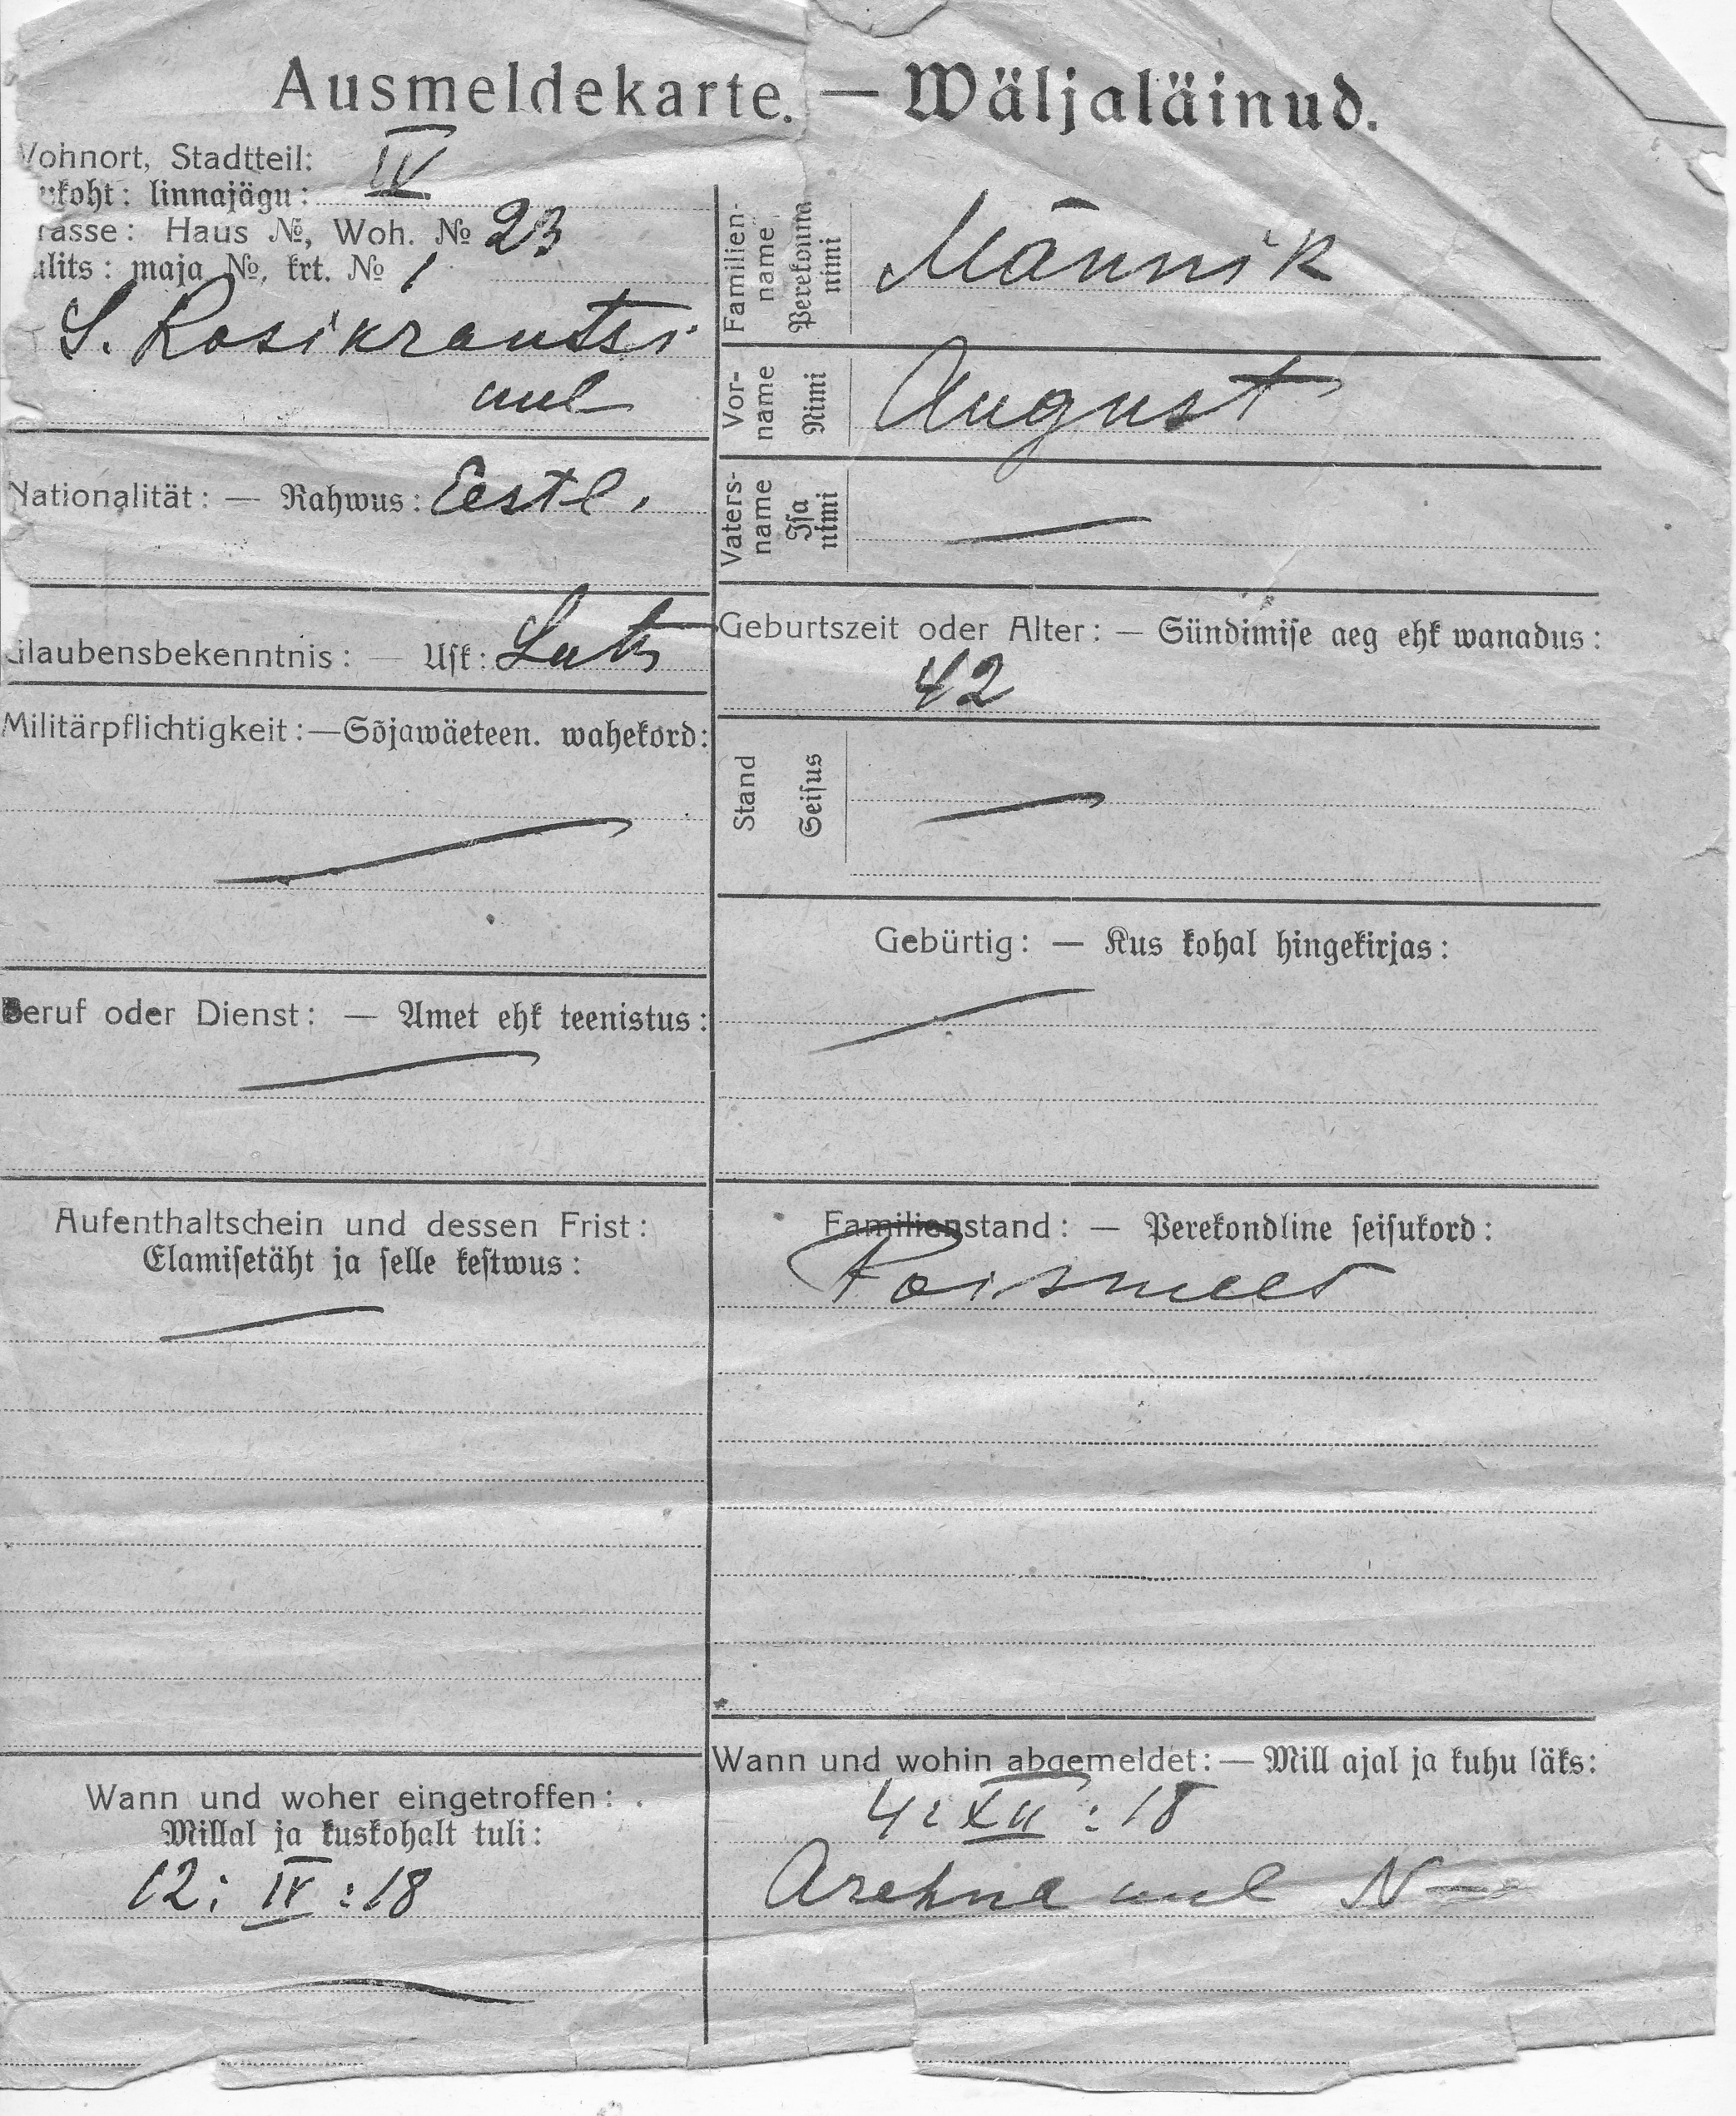 Ausmeldekarte. — Wäljaläinud.
Wohnort, Stadtteil: IV
ukoht: linnajägu:
rasse: Haus №, Woh. № 23
ulits: maja №, krt. № 1
S. Rosikrantsi
uul
Nationalität: — Rahwus: Eestl.
Glaubensbekenntnis: — Usk: Luth
Militärpflichtigkeit: — Sõjawäeteen. wahekord:
Beruf oder Dienst: — Amet ehk teenistus:
Aufenthaltschein und dessen Frist:
Elamisetäht ja selle kestwus:
Wann und woher eingetroffen:
Millal ja kuskohalt tuli:
12: IV: 18
Familien-
name
Perekonna
nimi
Männik
Vor-
name
Nimi
August
Vaters-
name
Isa
nimi
Geburtszeit oder Alter: — Sündimise aeg ehk wanadus:
42
Stand
Seisus
Gebürtig: — Kus kohal hingekirjas:
Familienstand: — Perekondline seisukord:
Poismees
Wann und wohin abgemeldet: — Mill ajal ja kuhu läks:
4: XII: 18
uul N—